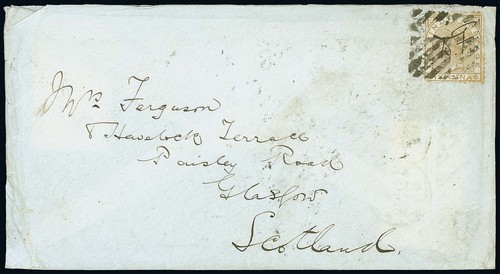 Mrs Ferguson
Havelock Terrace
Paisley Road
Glasgow
Scotland.